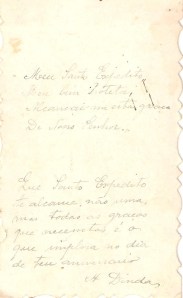 Meu Santo Expedito,
Meu bom
Alcançai
De Nosso Senhor.
Que Santo Expedito
te alcance, não uma,
mas todas as graças
que necessitas é o
que imploro no dia
de teu aniversario
A Dinda